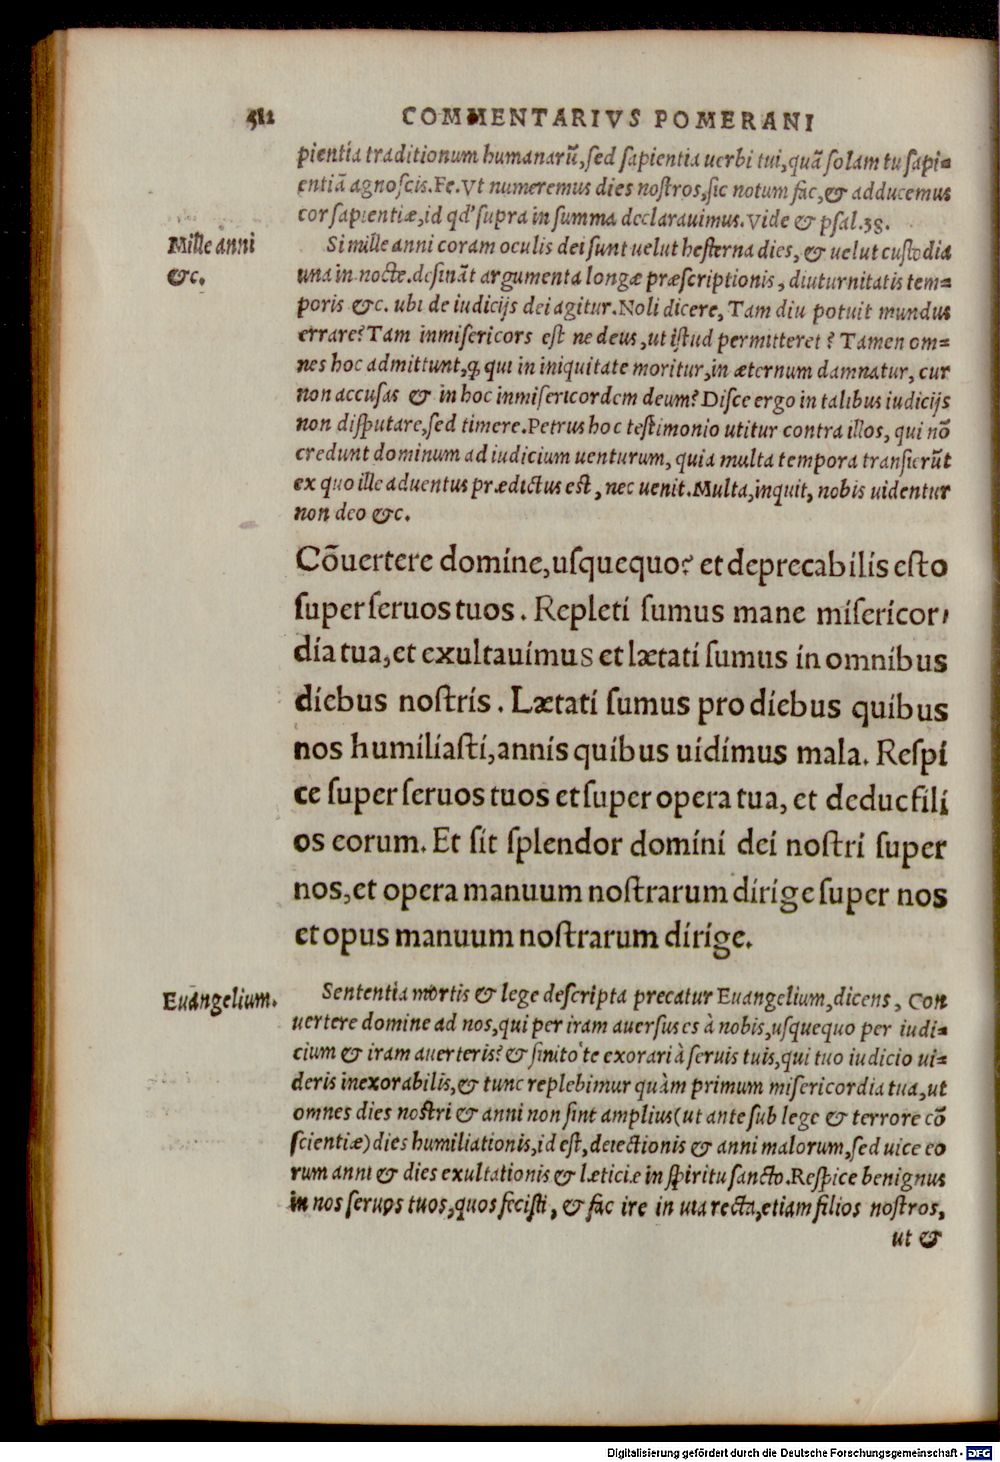 512 COMMENTARIVS POMERANI
pientia traditionum humanarū, sed sapientia uerbi tui, quā solam tu sapi=
entiā agnoscis. Fe. Vt numeremus dies nostros, sic notum fac, & adducemus
cor sapientiæ, id qd' supra in summa declarauimus. Vide & psal. 38.
Mille anni
&c.
Si mille anni coram oculis dei sunt uelut hesterna dies, & uelut custodia
una in nocte. desināt argumenta longæ præscriptionis, diuturnitatis tem=
poris &c. ubi de iudicijs dei agitur. Noli dicere, Tam diu potuit mundus
errare? Tam inmisericors est ne deus, ut istud permitteret? Tamen om=
nes hoc admittunt, q̨ qui in iniquitate moritur, in æternum damnatur, cur
non accusas & in hoc inmisericordem deum? Disce ergo in talibus iudicijs
non disputare, sed timere. Petrus hoc testimonio utitur contra illos, qui nō
credunt dominum ad iudicium uenturum, quia multa tempora transierūt
ex quo ille aduentus prædictus est, nec uenit. Multa, inquit, nobis uidentur
non deo &c.
Cōuertere domine, usquequo? et deprecabilis esto
super seruos tuos. Repleti sumus mane misericor,
dia tua, et exultauimus et lætati sumus in omnibus
diebus nostris. Lætati sumus pro diebus quibus
nos humiliasti, annis quibus uidimus mala. Respi
ce super seruos tuos et super opera tua, et deduc fili
os eorum. Et sit splendor domini dei nostri super
nos, et opera manuum nostrarum dirige super nos
et opus manuum nostrarum dirige.
Euangelium.
Sententia mortis & lege descripta precatur Euangelium, dicens, Con
uertere domine ad nos, qui per iram auersus es à nobis, usquequo per iudi=
cium & iram auerteris? & sinito te exorari à seruis tuis, qui tuo iudicio ui=
deris inexorabilis, & tunc replebimur quàm primum misericordia tua, ut
omnes dies nostri & anni non sint amplius (ut ante sub lege & terrore cō
scientiæ) dies humiliationis, id est, deiectionis & anni malorum, sed uice eo
rum anni & dies exultationis & læticiæ in spiritu sancto. Respice benignus
in nos seruos tuos, quos fecisti, & fac ire in uia recta, etiam filios nostros,
ut &
Digitalisierung gefördert durch die Deutsche Forschungsgemeinschaft - DFG